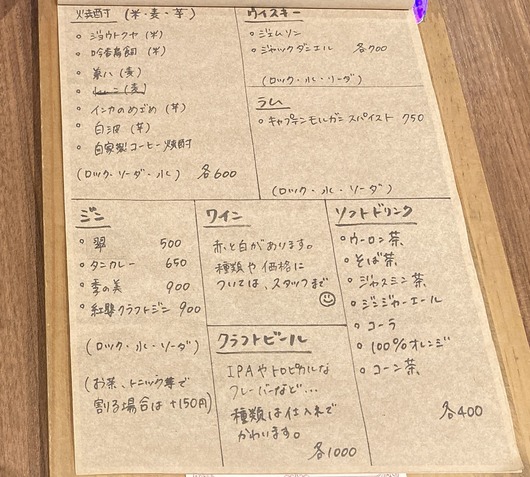 焼酎 (米・麦・芋)
・ジョウトクヤ (米)
・吟香鳥飼 (米)
・兼八 (麦)
・インカのめざめ (芋)
・白波 (芋)
・自家製コーヒー焼酎
(ロック・ソーダ・水) 各600
ウイスキー
・ジェムソン
・ジャックダニエル 各700
(ロック・水・ソーダ)
ラム
・キャプテンモルガン スパイスト 750
(ロック・水・ソーダ)
ジン
・翠 500
・タンカレー 650
・季の美 900
・紅櫻クラフトジン 900
(ロック・水・ソーダ)
(お茶、トニック等で
割る場合は+150円)
ワイン
赤と白があります。
種類や価格に
ついては、スタッフまで
クラフトビール
IPAやトロピカルな
フレーバーなど...
種類は仕入れで
かわります。
各1000
ソフトドリンク
・ウーロン茶
・そば茶
・ジャスミン茶
・ジンジャーエール
・コーラ
・100%オレンジ
・コーン茶
各400